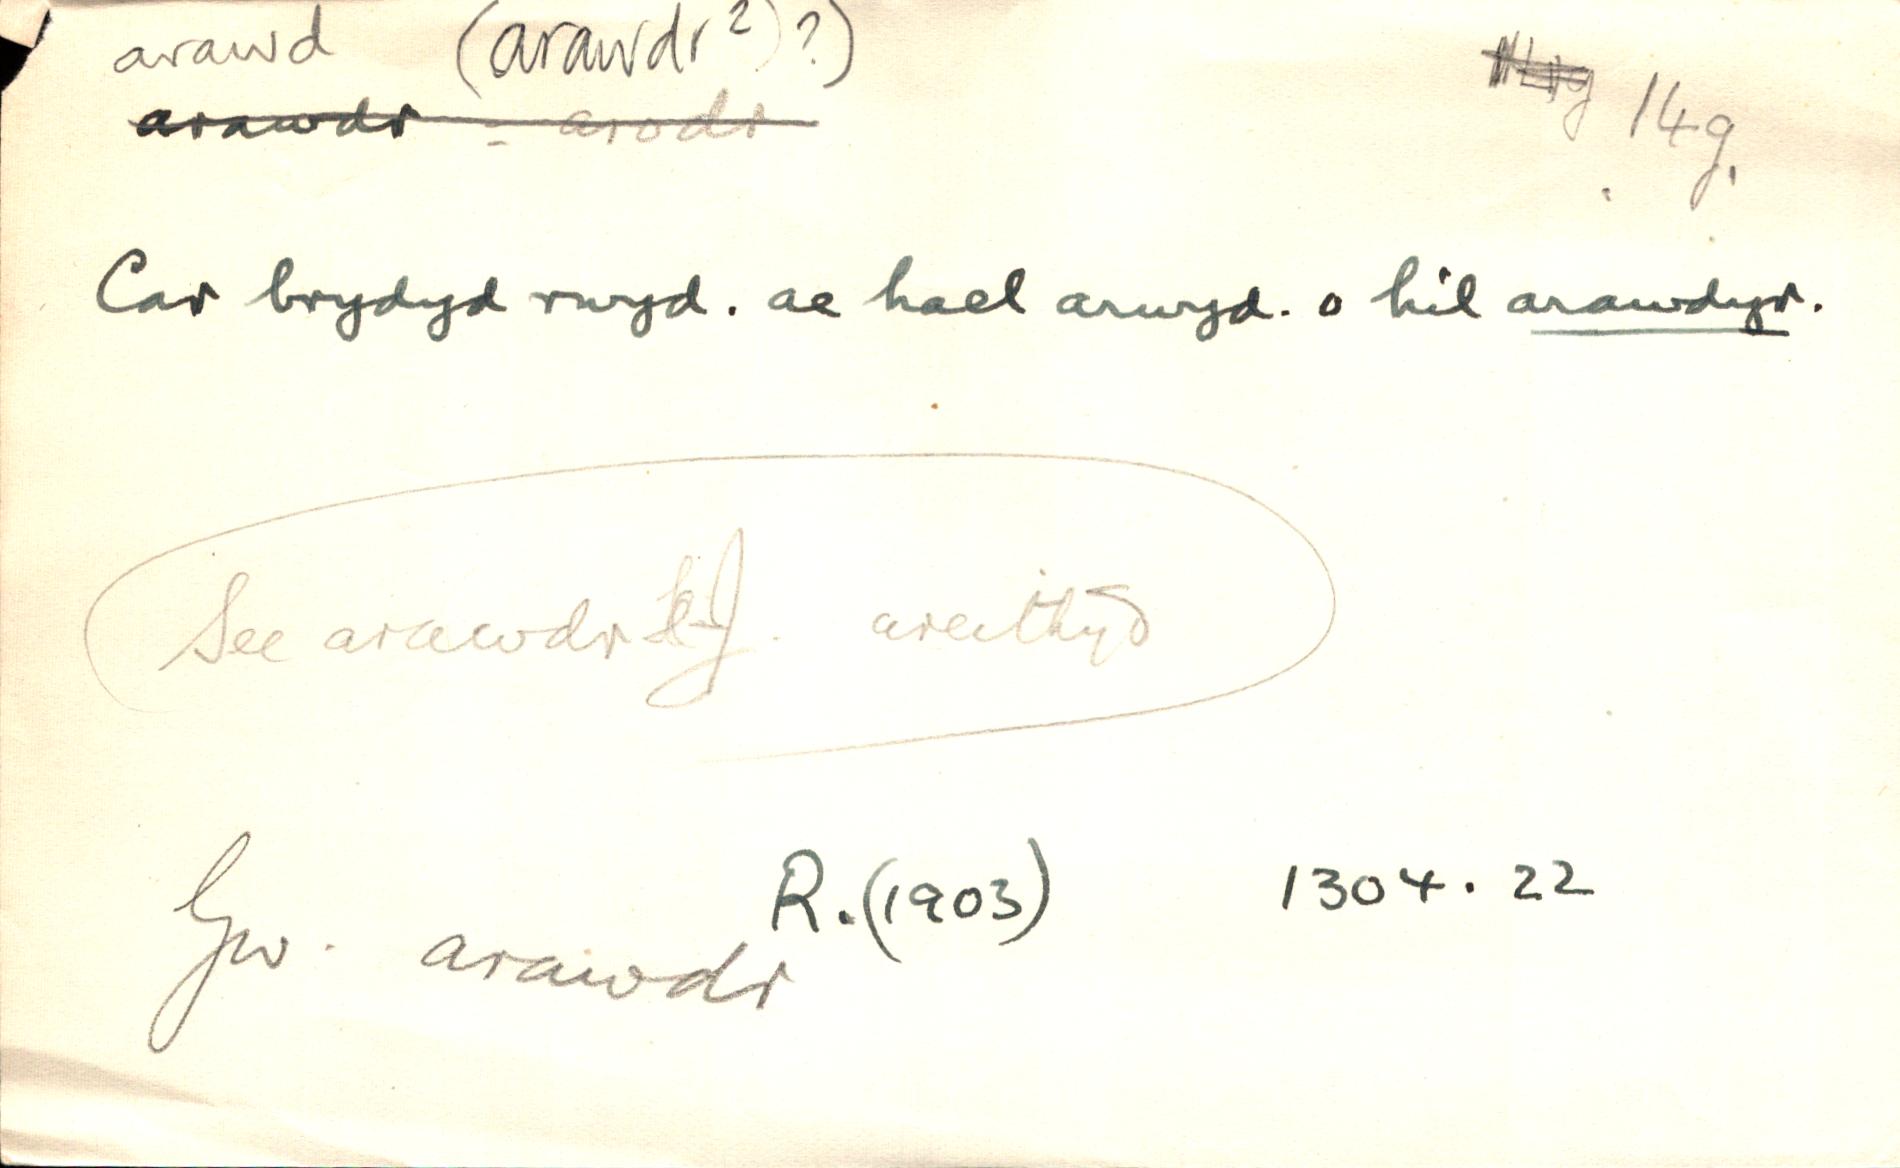 arawd (arawdr²)?)
arawdr = arodr
14g.
Car brydyd rwyd. ae hael arwyd. o hil arawdyr.
See arawdr areithyđ
R. (1903) 1304. 22
Gw. arawdr